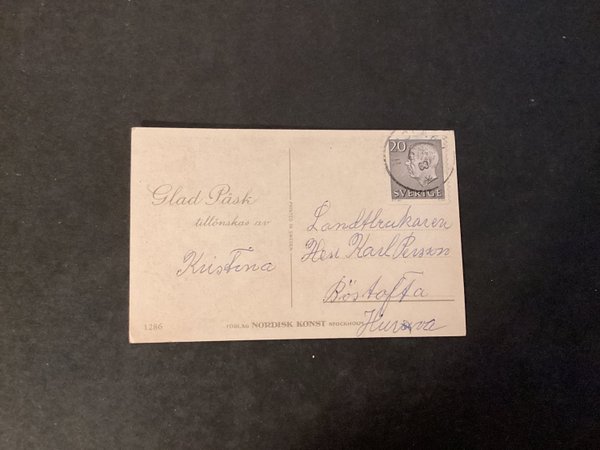 20
SVERIGE
Glad Påsk
tillönskas av
Kristina
PRINTED IN SWEDEN
Landtbrukaren
Herr Karl Persson
Böstofta
Hurva
1286
FÖRLAG NORDISK KONST STOCKHOLM